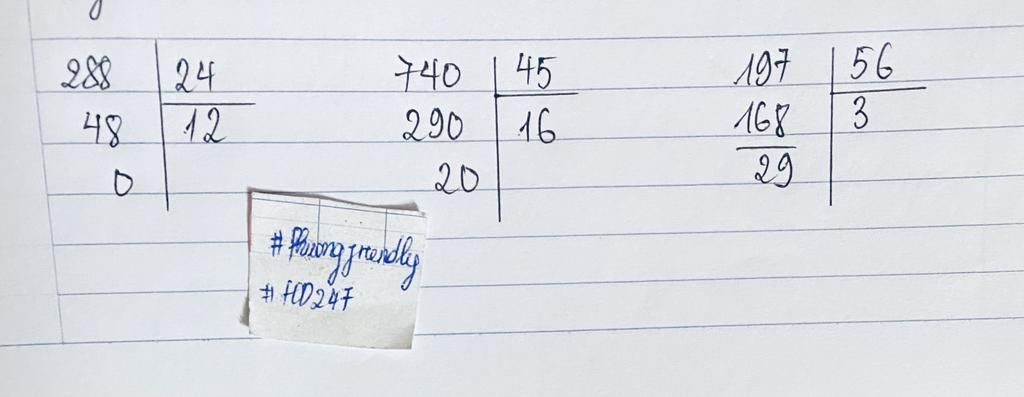 288 24 740 45 197 56
48 12 290 16 168 3
0 20 29
#Phuongfriendly
#HD247